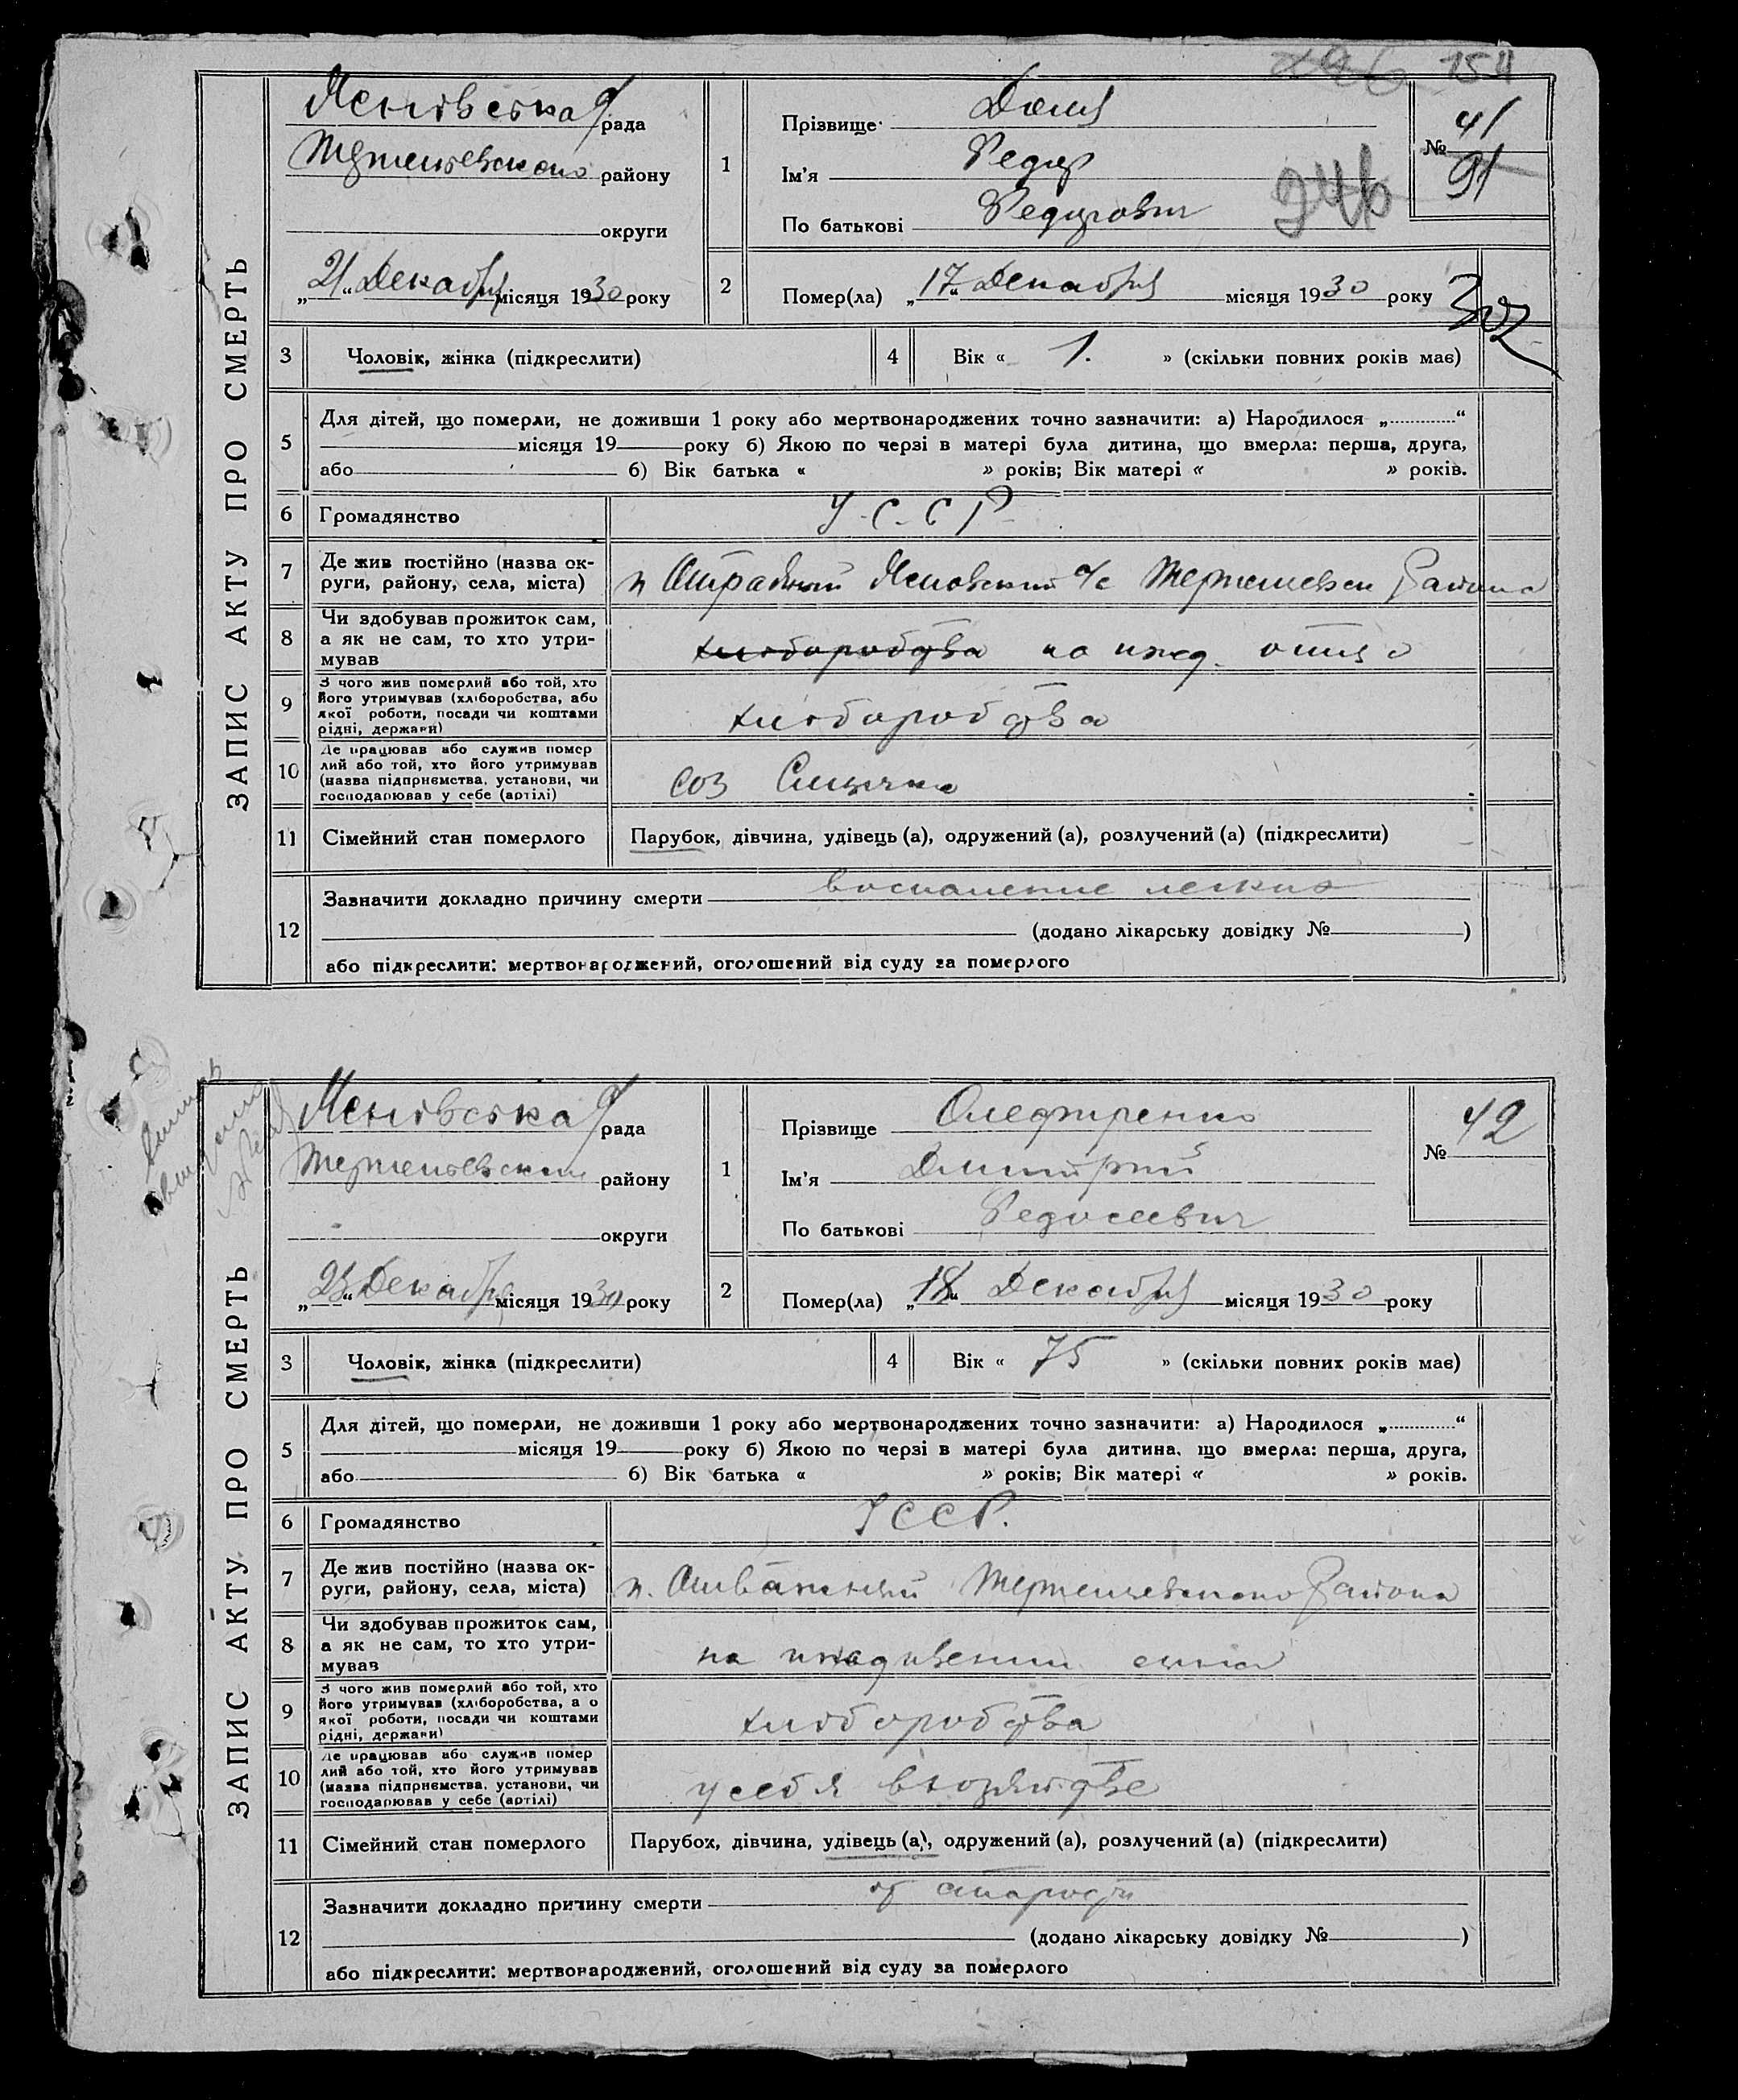 154
ЗАПИС АКТУ ПРО СМЕРТЬ
рада
району
округи
„21“ Декабря місяця 1930 року
1
Прізвище
Ім'я Федор
По батькові Федорович
№ 41
91
2
Помер(ла) „17“ Декабря місяця 1930 року
3
Чоловік, жінка (підкреслити)
4
Вік « 1. » (скільки повних років має)
5
Для дітей, що померли, не доживши 1 року або мертвонароджених точно зазначити: а) Народилося „ “
місяця 19 року б) Якою по черзі в матері була дитина, що вмерла: перша, друга,
або б) Вік батька « » років; Вік матері « » років.
6
Громадянство
У.С.С.Р
7
Де жив постійно (назва ок-
руги, району, села, міста)
п Отрадный с/с района
8
Чи здобував прожиток сам,
а як не сам, то хто утри-
мував
на ижд. отца
9
З чого жив померлий або той, хто
його утримував (хліборобства, або
якої роботи, посади чи коштами
рідні, держави)
хлеборобства
10
Де працював або служив помер
лий або той, хто його утримував
(назва підприємства, установи, чи
господарював у себе (артілі)
Соз Смычка
11
Сімейний стан померлого
Парубок, дівчина, удівець (а), одружений (а), розлучений (а) (підкреслити)
12
Зазначити докладно причину смерти воспаление легких
(додано лікарську довідку № )
або підкреслити: мертвонароджений, оголошений від суду за померлого
ЗАПИС АКТУ ПРО СМЕРТЬ
рада
району
округи
„23“ Декабря місяця 1930 року
1
Прізвище Олефиренко
Ім'я Дмитрий
По батькові Федосеевич
№ 42
2
Помер(ла) „18“ Декабря місяця 1930 року
3
Чоловік, жінка (підкреслити)
4
Вік « 75 » (скільки повних років має)
5
Для дітей, що померли, не доживши 1 року або мертвонароджених точно зазначити: а) Народилося „ “
місяця 19 року б) Якою по черзі в матері була дитина, що вмерла: перша, друга,
або б) Вік батька « » років; Вік матері « » років.
6
Громадянство
УССР.
7
Де жив постійно (назва ок-
руги, району, села, міста)
п. района
8
Чи здобував прожиток сам,
а як не сам, то хто утри-
мував
на иждивении сына
9
З чого жив померлий або той, хто
його утримував (хліборобства, а о
якої роботи, посади чи коштами
рідні, держави)
хлеборобства
10
Де працював або служив помер
лий або той, хто його утримував
(назва підприємства, установи, чи
господарював у себе (артілі)
у себя в хозяйстве
11
Сімейний стан померлого
Парубок, дівчина, удівець (а), одружений (а), розлучений (а) (підкреслити)
12
Зазначити докладно причину смерти от старости
(додано лікарську довідку № )
або підкреслити: мертвонароджений, оголошений від суду за померлого